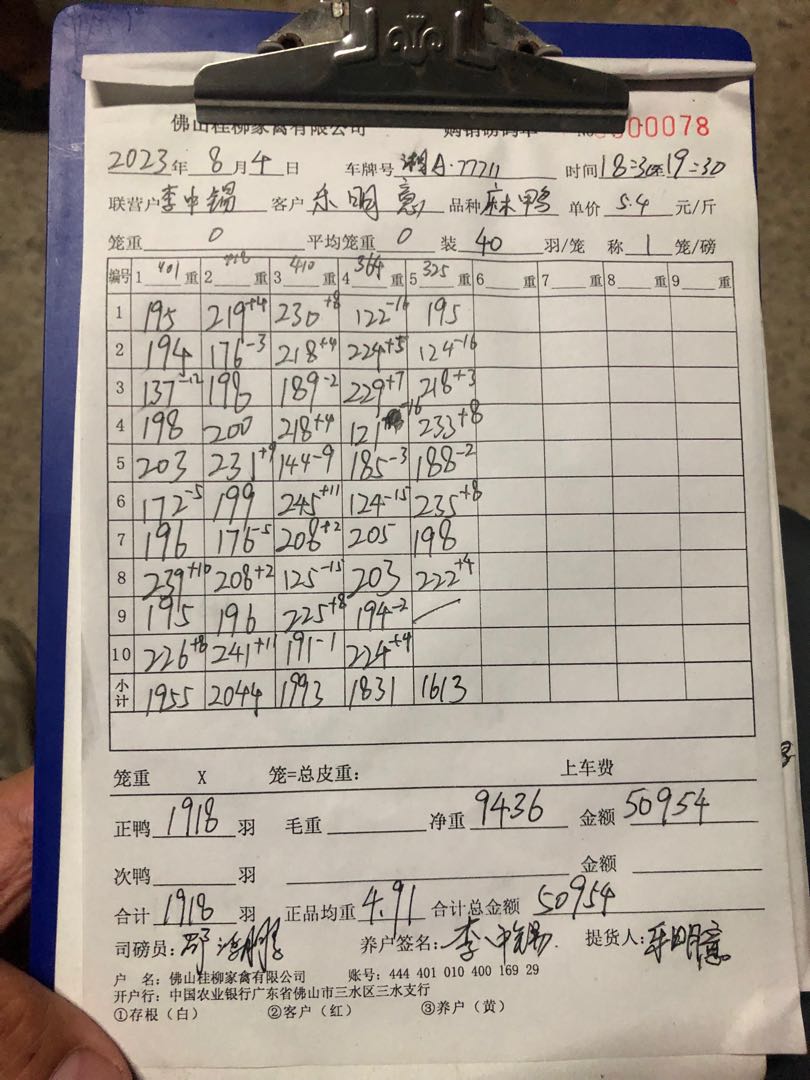 佛山桂柳家禽有限公司 购销磅码单 № 0000078
2023年8月4日 车牌号 湘A·77711 时间18:30至19:30
联营户李中锡 客户乐明意 品种麻鸭 单价5.4元/斤
笼重0 平均笼重0 装40羽/笼 称1笼/磅
编号 1 401 重 2 418 重 3 410 重 4 364 重 5 325 重 6 重 7 重 8 重 9 重
1 195 219+4 230+8 122-16 195
2 194 176-3 218+4 224+5 124-16
3 137-12 198 189-2 229+7 218+3
4 198 200 218+4 121-16 233+8
5 203 231+9 144-9 185-3 188-2
6 172-5 199 245+11 124-15 235+8
7 196 176-5 208+2 205 198
8 239+10 208+2 125-15 203 222+4
9 195 196 225+8 194-2
10 226+8 241+11 191-1 224+4
小计 1955 2044 1993 1831 1613
笼重 X 笼=总皮重: 上车费
正鸭1918羽 毛重 净重9436 金额50954
次鸭 羽 金额
合计1918羽 正品均重4.91 合计总金额50954
司磅员: 养户签名:李中锡 提货人:乐明意
户 名:佛山桂柳家禽有限公司 账号:444 401 010 400 169 29
开户行:中国农业银行广东省佛山市三水区三水支行
①存根(白) ②客户(红) ③养户(黄)